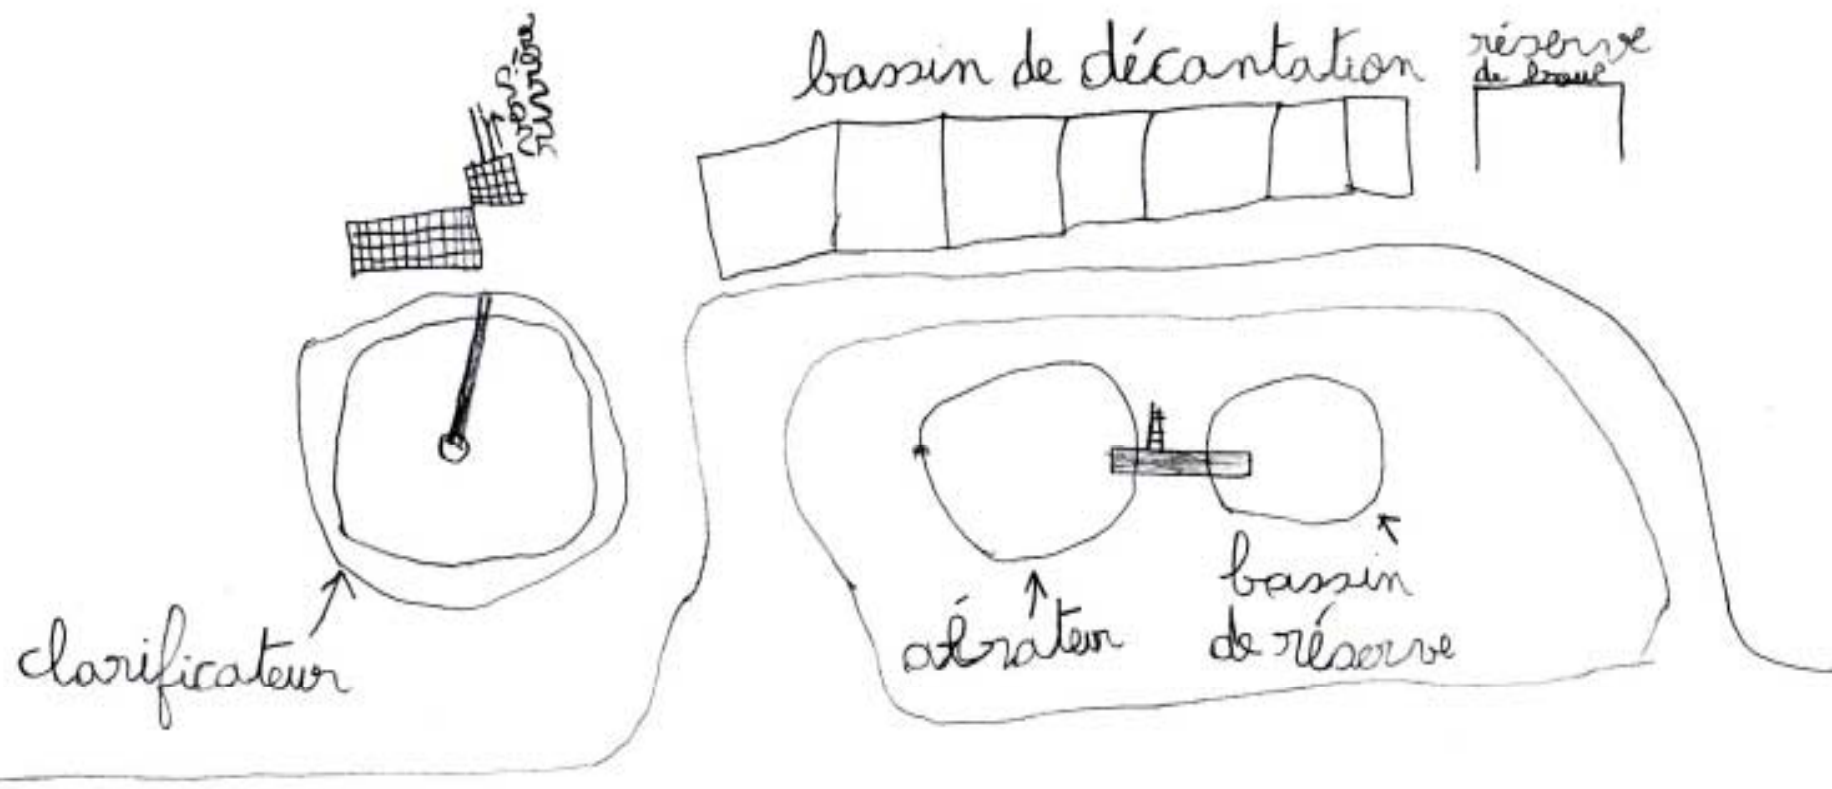 vers rivière
bassin de décantation
réserve
de boue
clarificateur
aérateur
bassin
de réserve